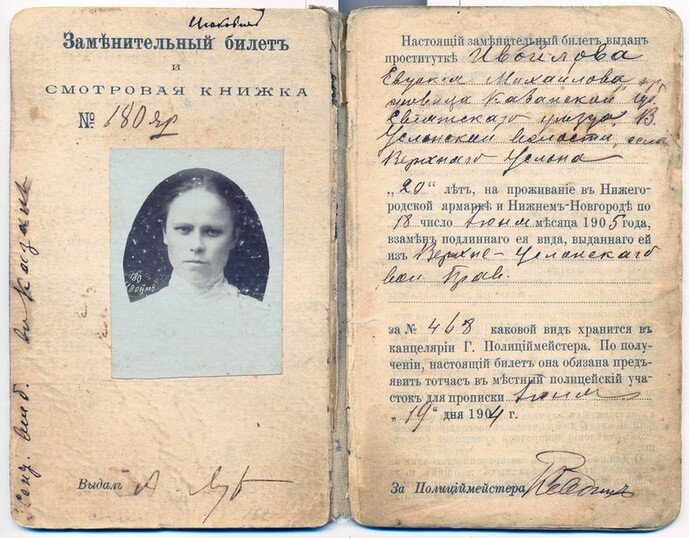 Замѣнительный билетъ
и
СМОТРОВАЯ КНИЖКА
№ 180 яр
180
Выдалъ А.
Настоящій замѣнительный билетъ выданъ
проституткѣ Ивойлова
Евдокія Михайлова, кр
Казанской губ.
Свіяжскаго уѣзда, В.
Услонской волости, села
Верхняго Услона
„20“ лѣтъ, на проживаніе въ Нижего-
родской ярмаркѣ и Нижнемъ-Новгородѣ по
18 число іюня мѣсяца 1905 года,
взамѣнъ подлиннаго ея вида, выданнаго ей
изъ Верхне-Услонскаго
вол. Прав.
за № 468 каковой видъ хранится въ
канцеляріи Г. Полиціймейстера. По полу-
ченіи, настоящій билетъ она обязана предъ-
явить тотчасъ въ мѣстный полицейскій уча-
стокъ для прописки іюня
„19“ дня 1904 г.
За Полиціймейстера